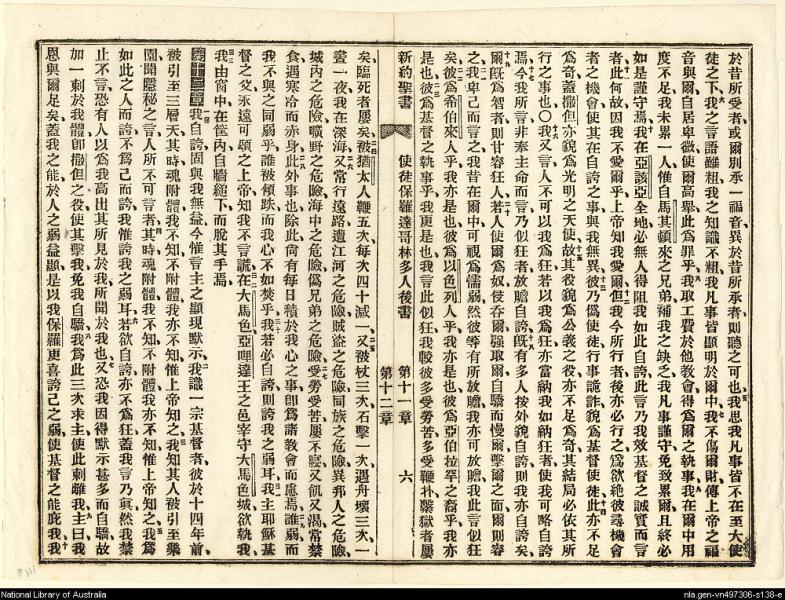 於昔所受者或爾別承一福音異於昔所承者則聽之可也五我思我凡事皆不在至大使
徒之下六我之言語雖粗我之知識不粗我凡事皆顯明於爾中七我不傷爾財傳上帝之福
音與爾自居卑微使爾高舉此為罪乎八我取工費於他教會得為爾之執事九我在爾中用
度不足我未累一人惟自馬其頓來之兄弟補我之缺乏我凡事謹守免致累爾且終必
如是謹守焉十我在亞該亞全地必無人得阻我如此自誇此言乃我效基督之誠實而言
者十一此何故因我不愛爾乎上帝知我愛爾十二但我今所行者後亦必行之為欲絕彼尋機會
者之機會使其在自誇之事與我無異十三彼乃偽使徒行事詭詐貌為基督使徒十四此亦不足
為奇蓋撒但亦貌為光明之天使十五故其役貌為公義之役亦不足為奇其結局必依其所
行之事也〇十六我又言人不可以我為狂若以我為狂亦當納我如納狂者使我可略自誇
焉十七今我所言非奉主命而言乃似狂者放膽自誇十八既有多人按外貌自誇則我亦自誇矣
十九爾既為智者則甘容狂人二十若人使爾為奴使吞爾強取爾自驕而慢爾擊爾之面爾則容
之二一我卑己而言之我昔在爾中可視為懦弱然彼等有所放膽我亦可放膽我此言似狂
矣二二彼為希伯來人乎我亦是也彼為以色列人乎我亦是也彼為亞伯拉罕之裔乎我亦
是也二三彼為基督之執事乎我更是也我言此似狂我較彼多受勞苦多受鞭扑繫獄者屢
新約聖書 使徒保羅達哥林多人後書 第十一章 第十二章 六
矣臨死者屢矣二四被猶太人鞭五次每次四十減一二五又被杖三次石擊一次遇舟壞三次一
晝一夜我在深海二六又常行遠路遭江河之危險賊盜之危險同族之危險異邦人之危險
城內之危險曠野之危險海中之危險偽兄弟之危險二七受勞受苦屢不寢又飢又渴常禁
食遇寒冷而赤身二八此外事也除此尚有每日積於我心之事即為諸教會而慮焉二九誰弱而
我不與之同弱乎誰被傾跌而我心不如焚乎三十我若必自誇則誇我之弱耳三一我主耶穌基
督之父永遠可頌之上帝知我不言謊三二在大馬色亞哩達王之邑宰守大馬色城欲執我
三三我由窗中在筐內自牆縋下而脫其手焉
第十二章一我自誇固與我無益今惟言主之顯現默示二我識一宗基督者彼於十四年前
被引至三層天其時魂附體我不知不附體我亦不知惟上帝知之三我知其人被引至樂
園聞隱秘之言人所不可言者四其時魂附體我不知不附體我亦不知惟上帝知之五我為
如此之人而誇不為己而誇我惟誇我之弱耳六若欲自誇亦不為狂蓋我言乃真然我禁
止不言恐有人以為我高出其所見於我所聞於我也七又恐我因得默示甚多而自驕故
加一刺於我體即撒但之役使其擊我免我自驕八我為此三次求主使此刺離我九主曰我
恩與爾足矣蓋我之能於人之弱益顯是以我保羅更喜誇己之弱使基督之能庇我十我
National Library of Australia
nla.gen-vn497306-s138-e